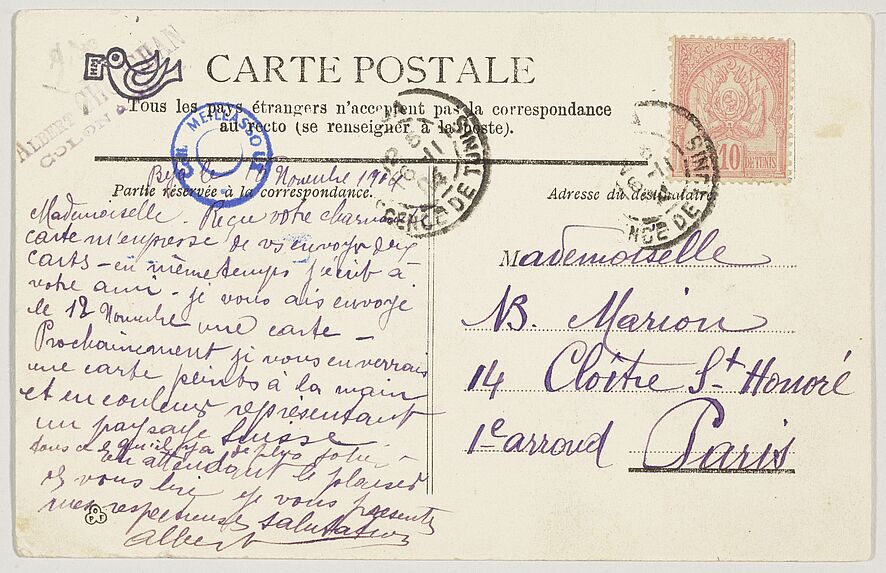 CARTE POSTALE
Tous les pays étrangers n'acceptent pas la correspondance
au recto (se renseigner à la poste).
ALBERT
COLON
MEILLASSOUX
TUNIS
AGENCE DE
POSTES
10
DE TUNIS
TUNIS
Partie réservée à la correspondance.
Adresse du destinataire
Novembre 1904
Mademoiselle. Reçu votre charmante
carte m'empresse de vs envoyer deux
carts - en même temps j'écrit à
votre ami - je vous ais envoyé
le 12 Novembre une carte -
Prochainement je vous enverrais
une carte peinte à la main
et en couleurs représentant
un paysage Suisse
dans ce qu'il y a de plus joli -
En attendant le plaisir
de vous lire je vous présente
mes respectueuses salutations
Albert
Mademoiselle
B. Marion
14 Cloître St Honoré
1e arrond Paris